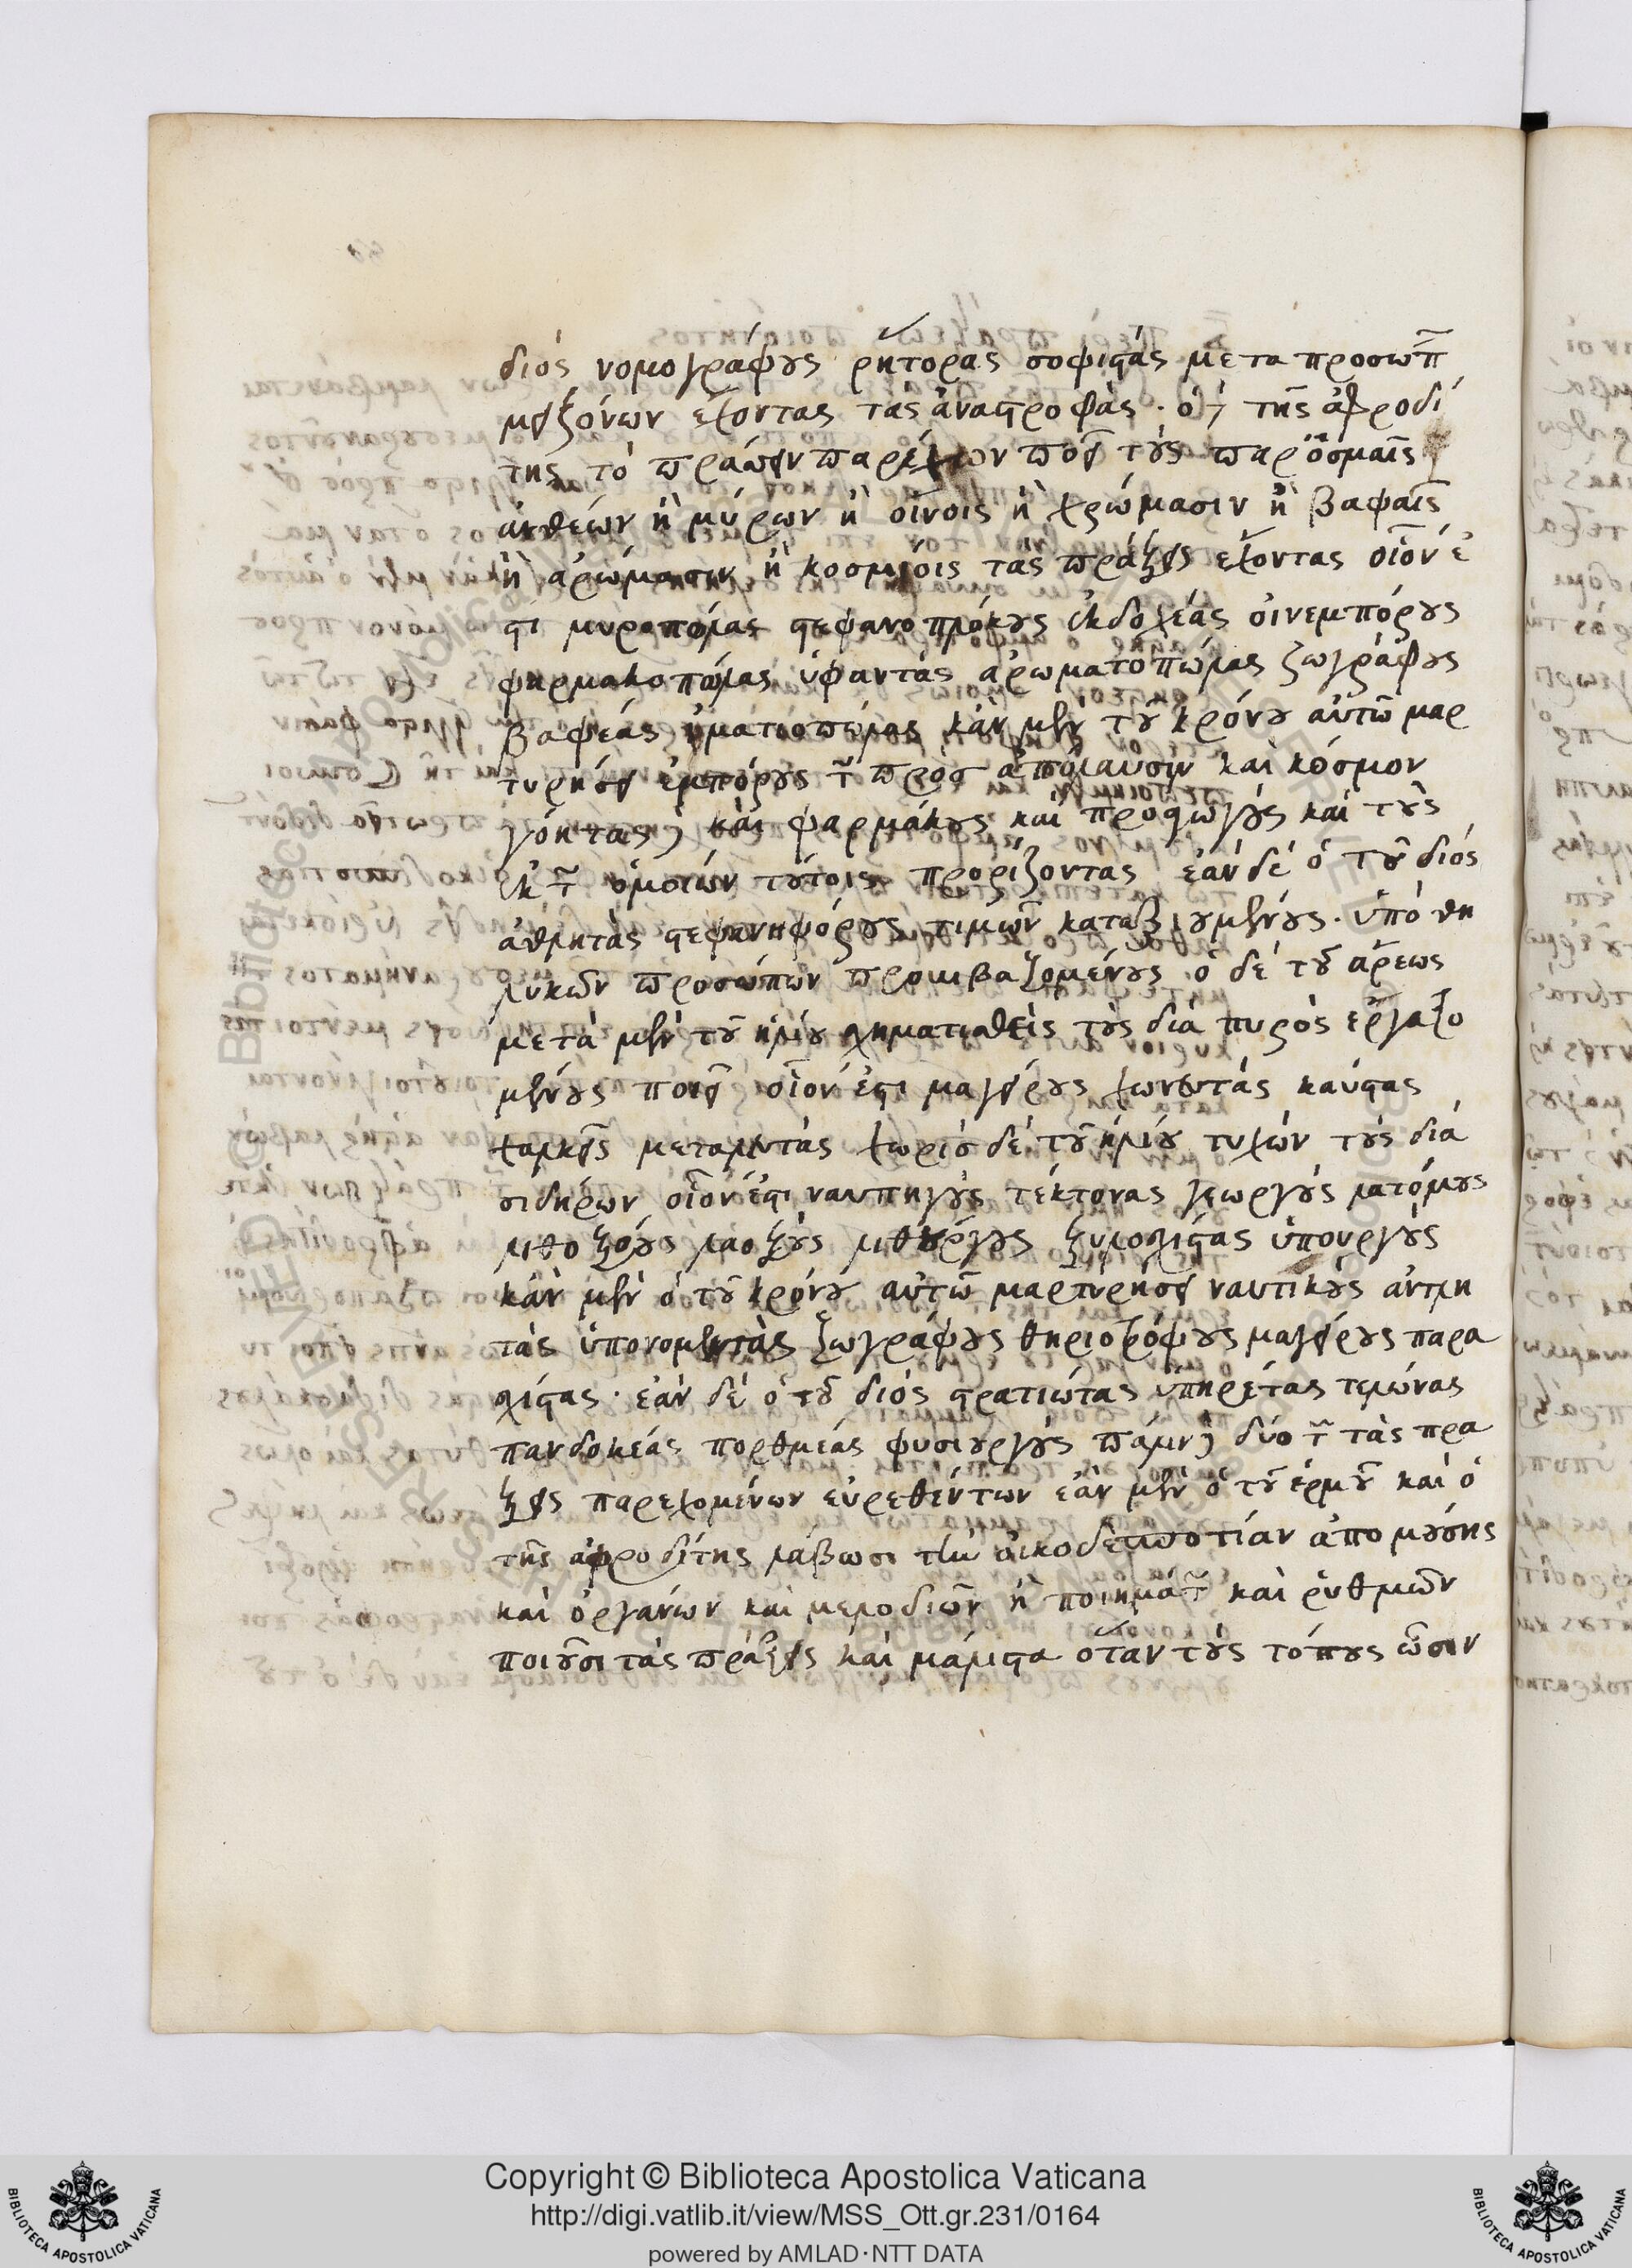 διός νομογράφους ῥήτορας σοφιστάς μετα προσώπ
μειζόνων ἔχοντας τὰς ἀναστροφάς · ὁ δὲ τῆς ἀφροδί
της τὸ πράσσειν παρέχων ποιεῖ τοὺς παρ ὀσμαῖς
ἀνθέων ἢ μύρων ἢ οἴνοις ἢ χρώμασιν ἢ βαφαῖς
ἢ ἀρώμασιν ἢ κοσμίοις τὰς πράξεις ἔχοντας οἷον ἐ
στι μυροπώλας στεφανοπλόκους ἐκδοχέας οἰνεμπόρους
φαρμακοπώλας ὑφαντὰς ἀρωματοπώλας ζωγράφους
βαφέας ἱματιοπώλας κἂν μὲν τοῦ κρόνου αὐτῷ μαρ
τυρήσει ἐμπόρους τῶν πρὸς ἀπόλαυσιν καὶ κόσμον
γόητας δὲ καὶ φαρμάκους καὶ προαγωγοὺς καὶ τοὺς
ἐκ τῶν ὁμοίων τούτοις προρίζοντας ἐὰν δὲ ὁ τοῦ διός
ἀθλητὰς στεφανηφόρους τιμῶν καταξιουμένους · ὑπὸ θη
λυκῶν προσώπων προμβαζομένους ὁ δὲ τοῦ ἄρεως
μετὰ μὲν τοῦ ἡλίου σχηματισθεὶς τοὺς διὰ πυρὸς ἐργαζο
μένους ποιεῖ οἷον ἐστι μαγείρους χωνευτάς καύστας
χαλκεῖς μεταλευτάς χωρὶς δὲ τοῦ ἡλίου τυχών τοὺς διὰ
σιδήρων οἷον ἐστι ναυπηγοὺς τέκτονας γεωργοὺς λατόμους
λιθοξόους λαοξοὺς λιθουργοὺς ξυλοσχίστας ὑπουργοὺς
κἂν μὲν ὁ τοῦ κρόνου αὐτῷ μαρτυρήσει ναυτικοὺς ἀντλη
τάς ὑπονομευτάς ζωγράφους θηριοτρόφους μαγείρους παρα
σχίστας · ἐὰν δὲ ὁ τοῦ διός στρατιώτας ὑπηρέτας τελώνας
πανδοκέας πορθμέας φυσιουργοὺς πάλιν δὲ δύο τῶν τὰς πρα
ξεις παρεχομένων εὑρεθέντων ἐὰν μὲν ὁ τοῦ ἑρμοῦ καὶ ὁ
τῆς ἀφροδίτης λάβωσι τὴν οἰκοδεσποτίαν ἀπο μούσης
καὶ ὀργάνων καὶ μελοδιῶν ἢ ποιημάτων καὶ ῥυθμῶν
ποιοῦσι τὰς πράξεις καὶ μάλιστα ὅταν τοὺς τόπους ὦσιν
Copyright © Biblioteca Apostolica Vaticana
http://digi.vatlib.it/view/MSS_Ott.gr.231/0164
powered by AMLAD·NTT DATA
BIBLIOTECA APOSTOLICA VATICANA
BIBLIOTECA APOSTOLICA VATICANA